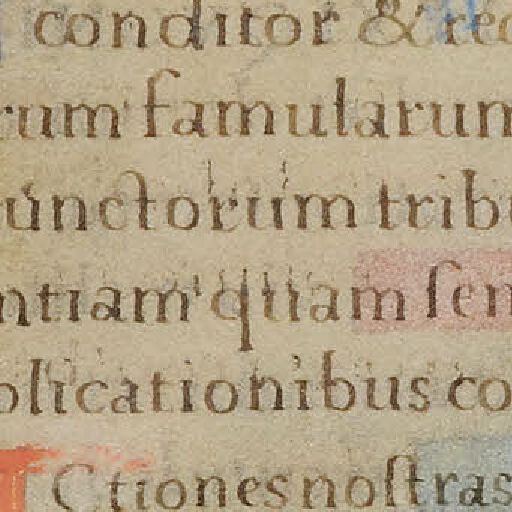 conditor & red
rum famularum
functorum tribu
ntiam quam sem
plicationibus co
Actiones nostras